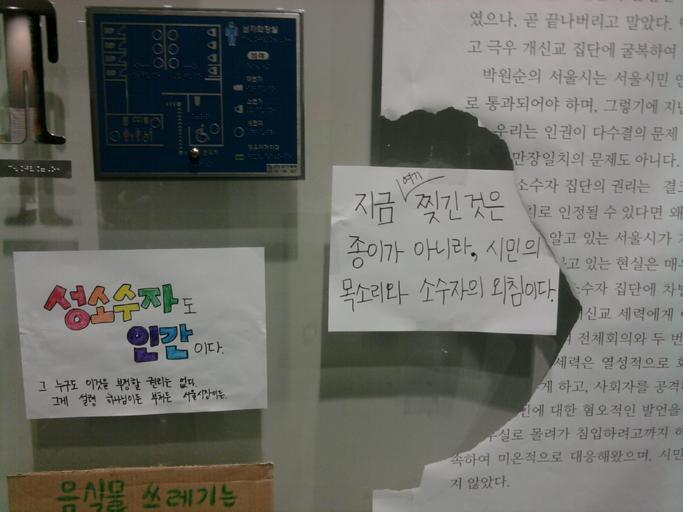 남자화장실
성소수자도
인간이다.
그 누구도 이것을 부정할 권리는 없다.
그게 설령 하나님이든 부처든 서울시장이든.
음식물 쓰레기는
지금 여기 찢긴 것은
종이가 아니라, 시민의
목소리와 소수자의 외침이다.
였으나, 곧 끝나버리고 말았다.
고 극우 개신교 집단에 굴복하여
박원순의 서울시는 서울시민 인
로 통과되어야 하며, 그렇기에 지난
우리는 인권이 다수결의 문제
만장일치의 문제도 아니다.
소수자 집단의 권리는 결코
로 인정될 수 있다면 왜
알고 있는 서울시가
고 있는 현실은 매우
소수자 집단에 차별
신교 세력에게
전체회의와 두 번
세력은 열성적으로
게 하고, 사회자를 공격
에 대한 혐오적인 발언을
실로 몰려가 침입하려고까지
속하여 미온적으로 대응해왔으며, 시민
지 않았다.